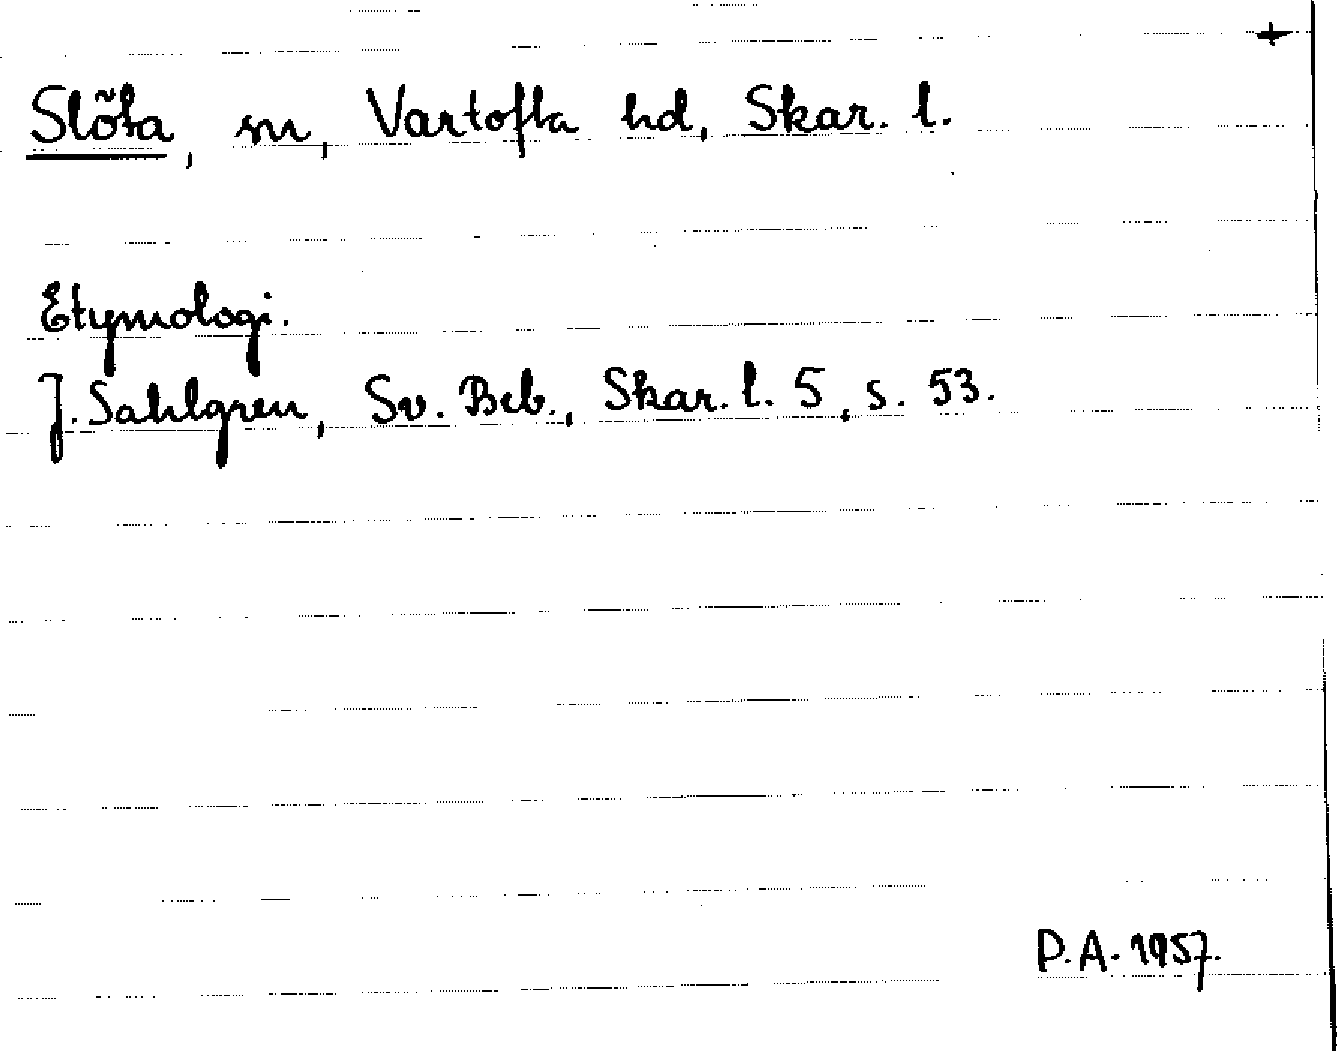 +
Slöta, sn, Vartofta hd, Skar. l.
Etymologi.
J. Sahlgren, Sv. Beb., Skar. l. 5, s. 53.
P.A. 1957.